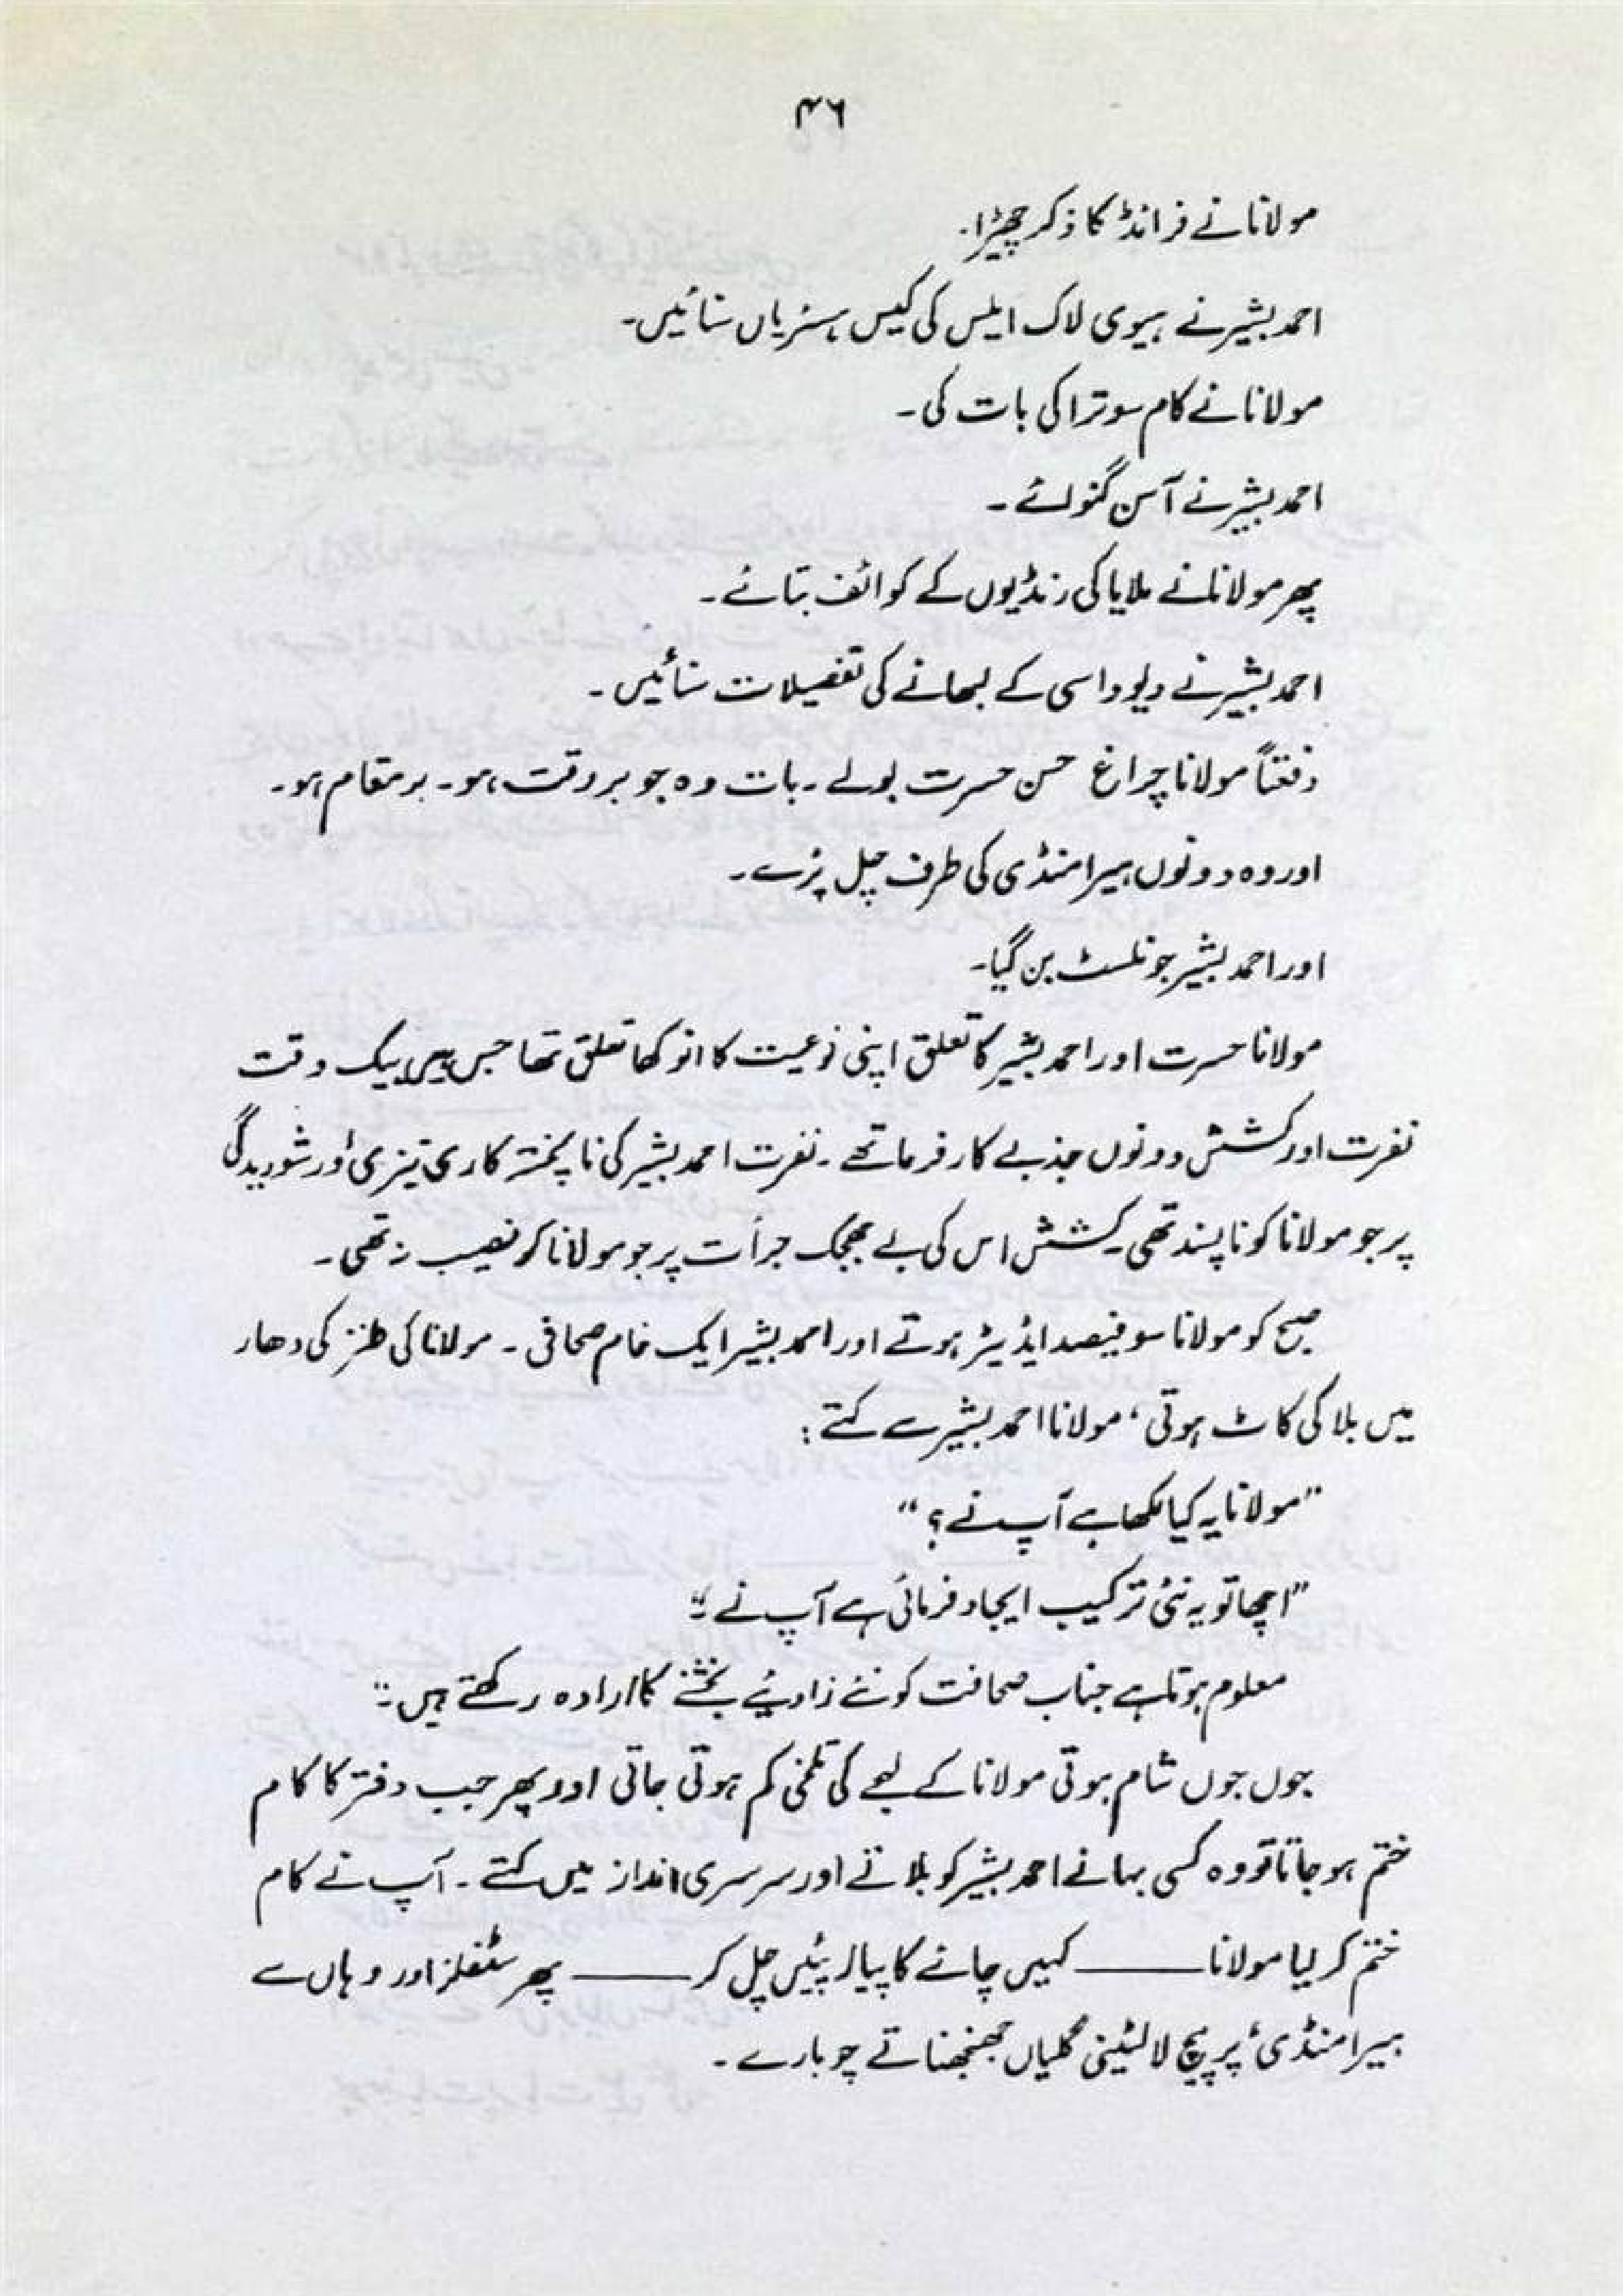 ۴۶
مولانا نے فرائڈ کا ذکر چھیڑا۔
احمد بشیر نے ہیوی لاک ایلس کی کیس ہسٹریاں سنائیں۔
مولانا نے کام سوترا کی بات کی۔
احمد بشیر نے آسن گنوائے۔
پھر مولانا نے ملایا کی رنڈیوں کے کوائف بتائے۔
احمد بشیر نے دیوداسی کے لبھانے کی تفصیلات سنائیں۔
دفعتاً مولانا چراغ حسن حسرت بولے۔ بات وہ جو بر وقت ہو۔ بر مقام ہو۔
اور وہ دونوں ہیرا منڈی کی طرف چل پڑے۔
اور احمد بشیر جرنلسٹ بن گیا۔
مولانا حسرت اور احمد بشیر کا تعلق اپنی نوعیت کا انوکھا تعلق تھا جس میں بیک وقت
نفرت اور کشش دونوں جذبے کارفرما تھے۔ نفرت احمد بشیر کی ناپختہ کاری تیزی اور شوریدگی
پر جو مولانا کو ناپسند تھی۔ کشش اس کی بے جھجک جرأت پر جو مولانا کو نصیب نہ تھی۔
صبح کو مولانا سو فیصد ایڈیٹر ہوتے اور احمد بشیر ایک خام صحافی۔ مولانا کی طنز کی دھار
میں بلا کی کاٹ ہوتی، مولانا احمد بشیر سے کہتے:
"مولانا یہ کیا لکھا ہے آپ نے؟"
"اچھا تو یہ نئی ترکیب ایجاد فرمائی ہے آپ نے۔"
معلوم ہوتا ہے جناب صحافت کو نئے زاویے بخشنے کا ارادہ رکھتے ہیں۔"
جوں جوں شام ہوتی مولانا کے لہجے کی تلخی کم ہوتی جاتی اور پھر جب دفتر کا کام
ختم ہو جاتا تو وہ کسی بہانے احمد بشیر کو بلاتے اور سرسری انداز میں کہتے۔ آپ نے کام
ختم کر لیا مولانا ——— کہیں چائے کا پیالہ پئیں چل کر ——— پھر سٹفلز اور وہاں سے
ہیرا منڈی، پرپیچ لالٹینی گلیاں جھنجھناتے چوبارے۔